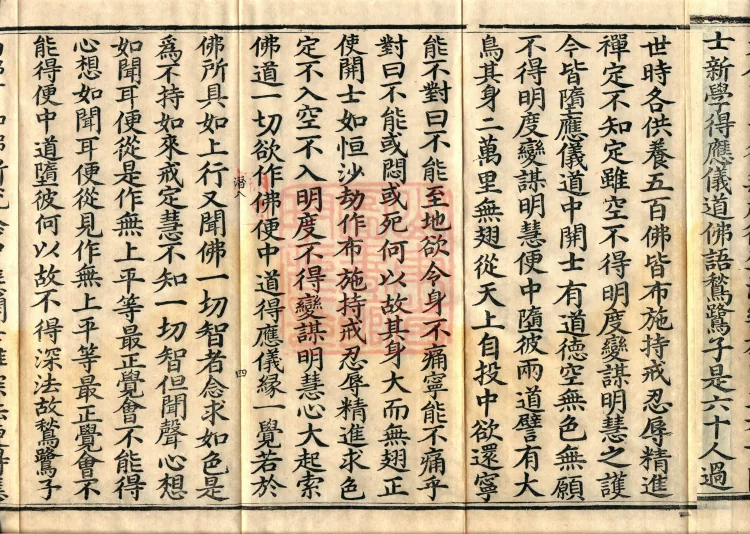 士新學得應儀道佛語鶖鷺子是六十人過
世時各供養五百佛皆布施持戒忍辱精進
禪定不知定雖空不得明度變謀明慧之護
今皆墮應儀道中開士有道德空無色無願
不得明度變謀明慧便中墮彼兩道譬有大
鳥其身二萬里無翅從天上自投中欲還寧
能不對曰不能至地欲令身不痛寧能不痛乎
對曰不能或悶或死何以故其身大而無翅正
使開士如恒沙劫作布施持戒忍辱精進求色
定不入空不入明度不得變謀明慧心大起索
佛道一切欲作佛便中道得應儀緣一覺若於
潛八
四
佛所具如上行又聞佛一切智者念求如色是
爲不持如來戒定慧不知一切智但聞聲心想
如聞耳便從是作無上平等最正覺會不能得
心想如聞耳便從見作無上平等最正覺會不
能得便中道墮彼何以故不得深法故鶖鷺子